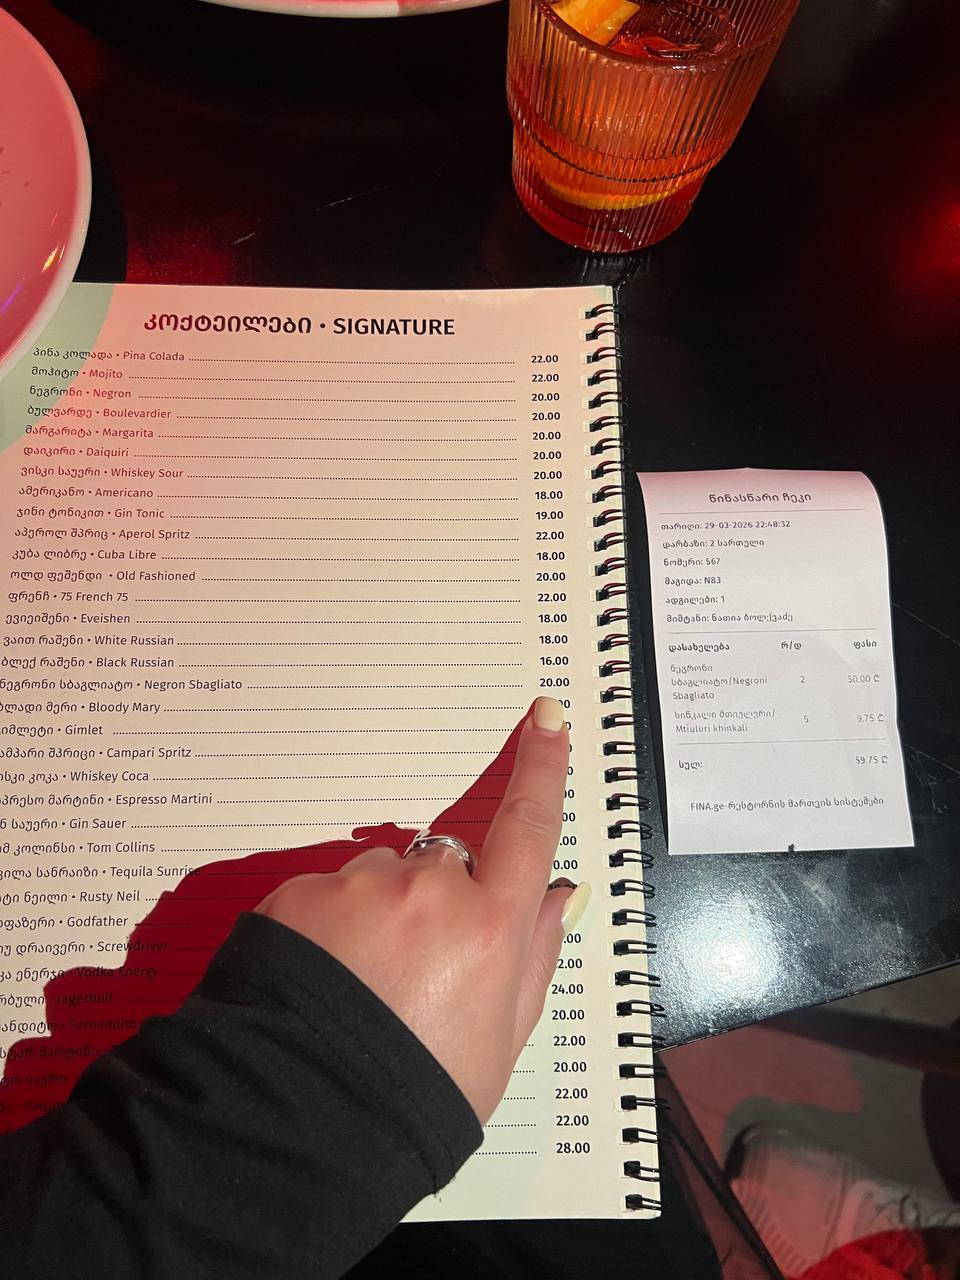 კოქტეილები • SIGNATURE
პინა კოლადა • Pina Colada 22.00
მოჰიტო • Mojito 22.00
ნეგრონი • Negron 20.00
ბულვარდე • Boulevardier 20.00
მარგარიტა • Margarita 20.00
დაიკირი • Daiquiri 20.00
ვისკი საუერი • Whiskey Sour 20.00
ამერიკანო • Americano 18.00
ჯინი ტონიკით • Gin Tonic 19.00
აპეროლ შპრიც • Aperol Spritz 22.00
კუბა ლიბრე • Cuba Libre 18.00
ოლდ ფეშენდი • Old Fashioned 20.00
ფრენჩ • 75 French 75 22.00
ევიეიშენი • Eveishen 18.00
ვაით რაშენი • White Russian 18.00
ბლექ რაშენი • Black Russian 16.00
ნეგრონი სბაგლიატო • Negron Sbagliato 20.00
ბლადი მერი • Bloody Mary
• Gimlet
შპრიცი • Campari Spritz
კოკა • Whiskey Coca
მარტინი • Espresso Martini
საუერი • Gin Sauer
კოლინსი • Tom Collins
სანრაიზი • Tequila Sunrise
ნეილი • Rusty Neil
• Godfather
დრაივერი • Screwdriver
ენერჯი • Vodka Energy
• Jagerbull 24.00
• Fernandito 20.00
მარტინი • 22.00
საური • 20.00
22.00
22.00
28.00
წინასწარი ჩეკი
თარიღი: 29-03-2026 22:48:32
დარბაზი: 2 სართული
ნომერი: 567
მაგიდა: N83
ადგილები: 1
მიმტანი: ნათია ბოლქვაძე
დასახელება რ/დ ფასი
ნეგრონი
სბაგლიატო/Negroni 2 50.00 ₾
Sbagliato
ხინკალი მთიულური/ 5 9.75 ₾
Mtiuluri khinkali
სულ: 59.75 ₾
FINA.ge-რესტორნის მართვის სისტემები